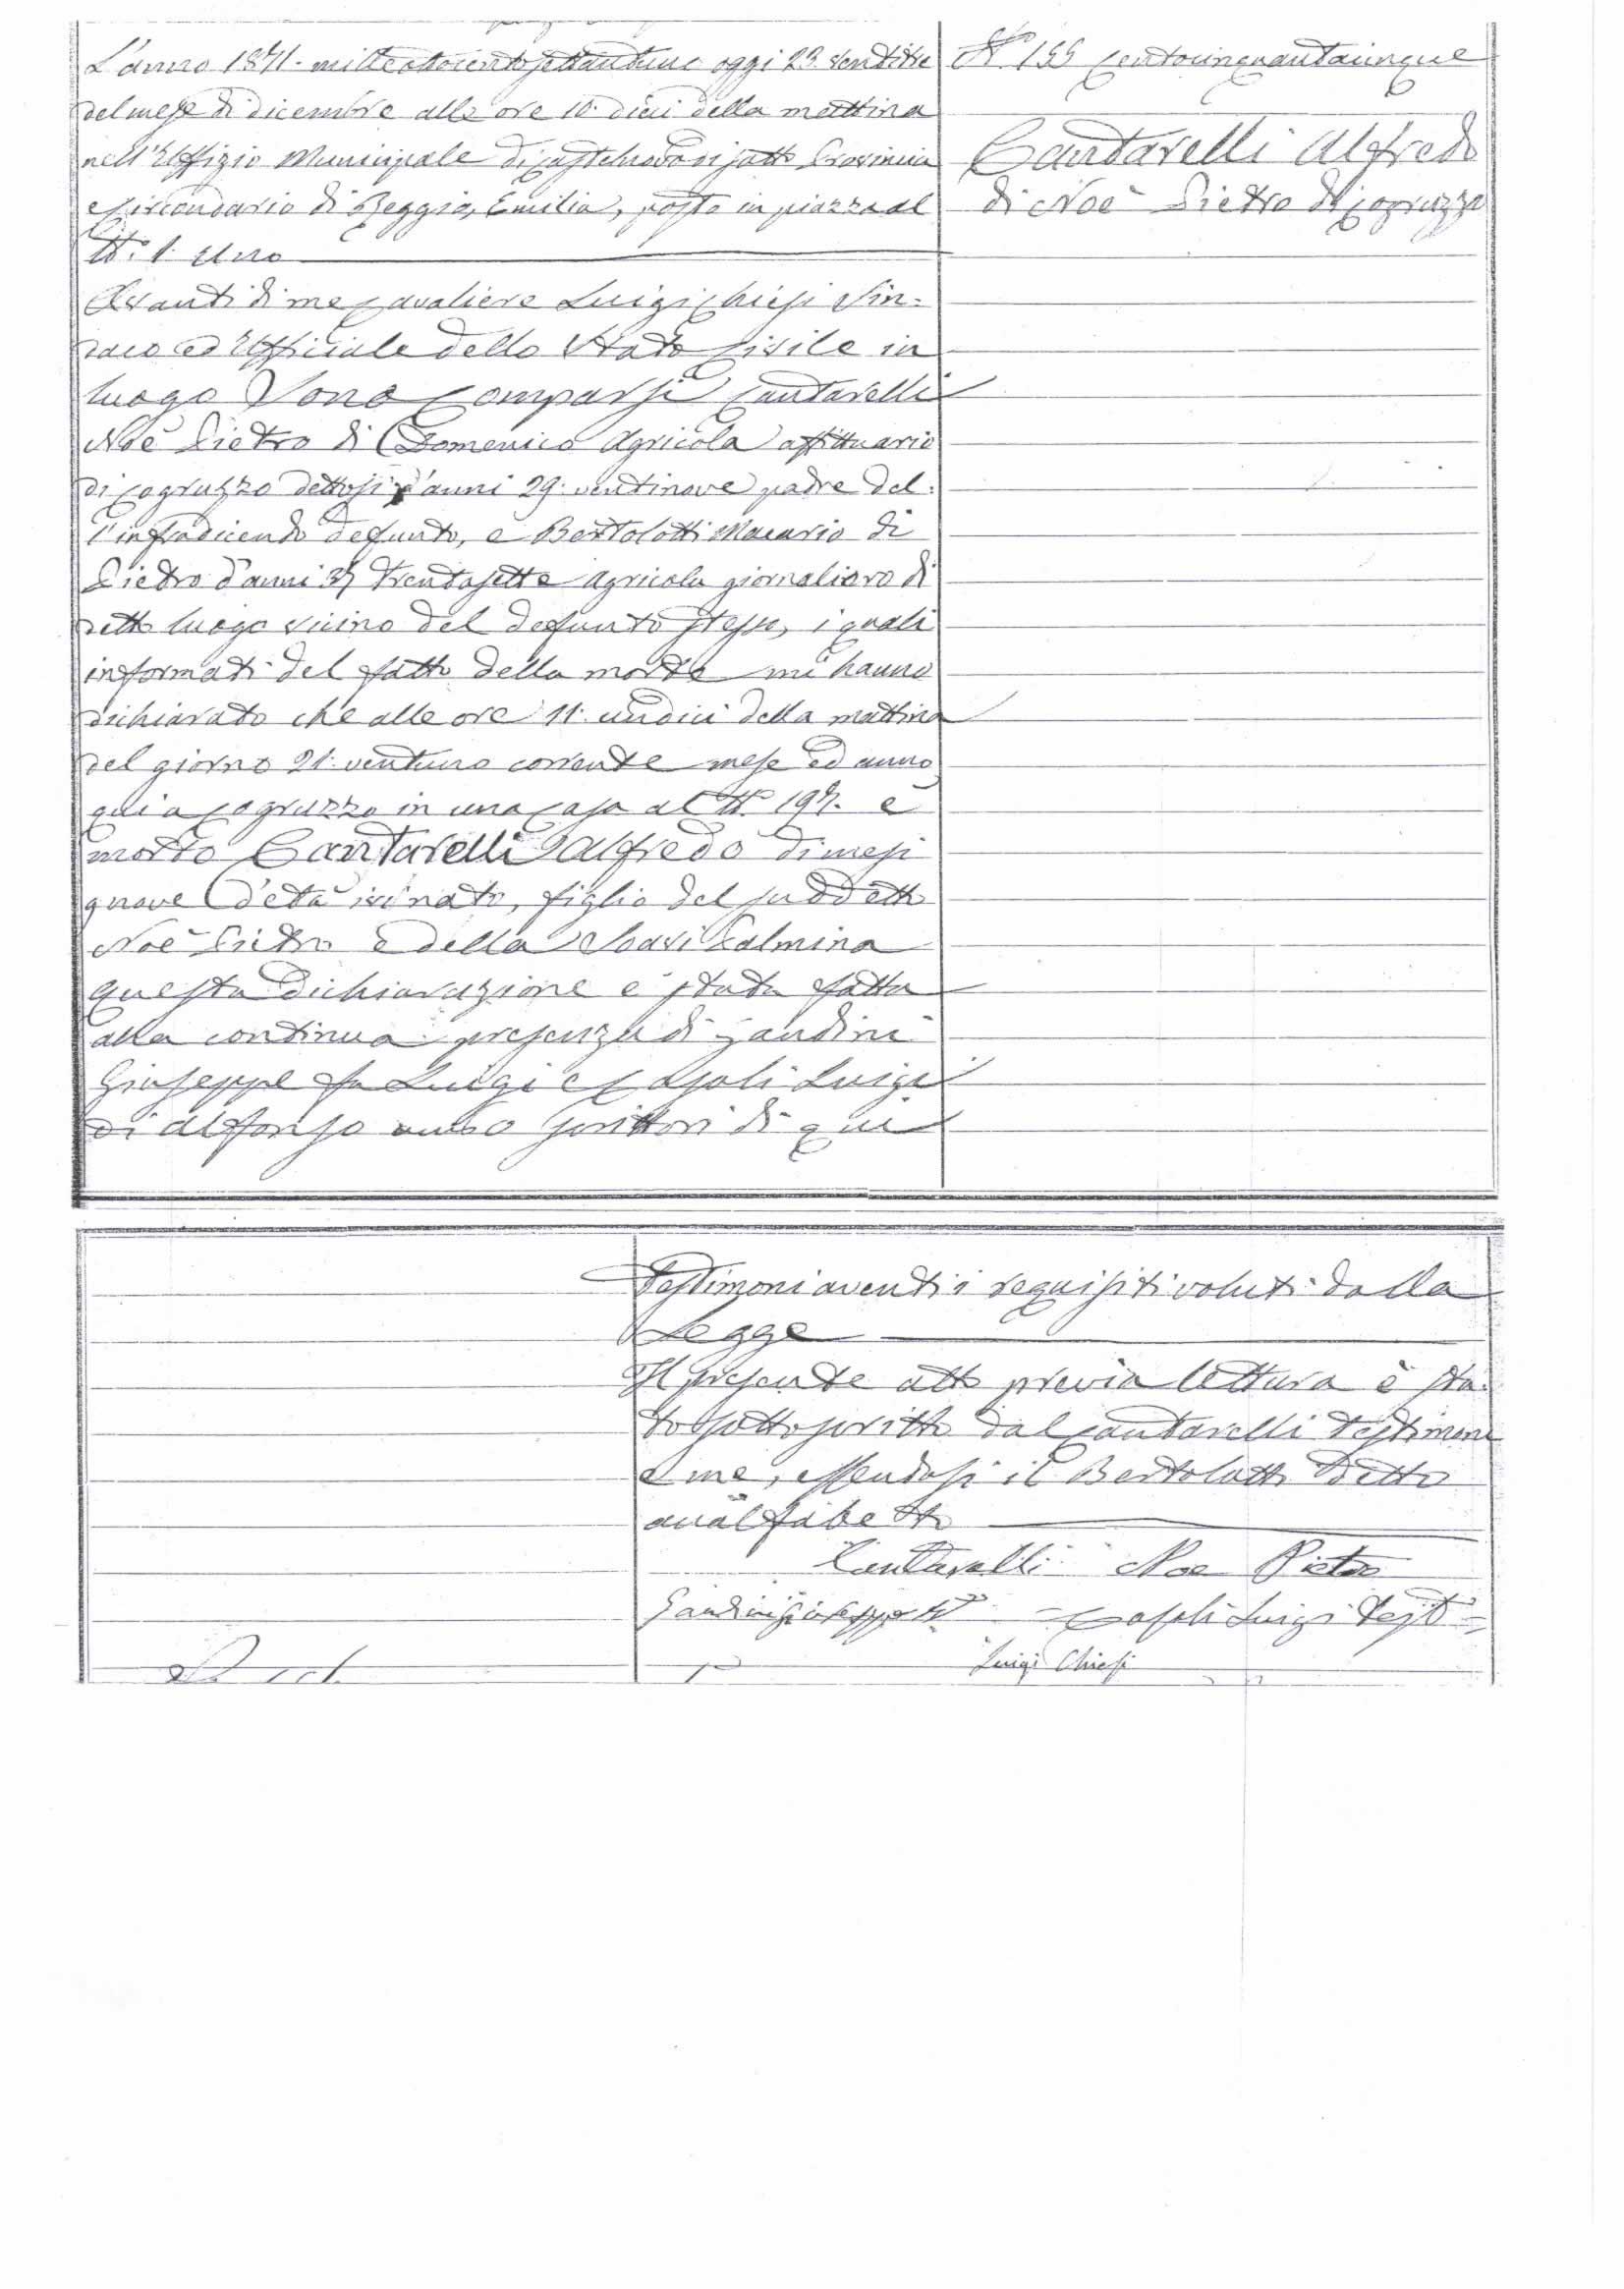 L'anno 1871. milleottocentosettantuno oggi 23. ventitre
del mese di dicembre alle ore 10. dieci della mattina
nell'Uffizio Municipale di Castelnovo di sotto Provincia
e Circondario di Reggio, Emilia, posto in piazza al
N.° 1. Uno
Avanti di me Cavaliere Luigi Chiesi Sin=
daco ed Ufficiale dello Stato Civile in
luogo Sono Comparsi Cantarelli
Noè Pietro di Domenico Agricola affittuario
di Cogruzzo dettosi d'anni 29. ventinove padre del=
l'infradicendo defunto, e Bertolotti Macario di
Pietro d'anni 37 trentasette agricola giornaliero di
detto luogo vicino del defunto stesso, i quali
informati del fatto della morte mi hanno
dichiarato che alle ore 11. undici della mattina
del giorno 21. ventuno corrente mese ed anno
qui a Cogruzzo in una casa al N.° 197. è
morto Cantarelli Alfredo di mesi
nove d'età ivi nato, figlio del suddetto
Noè Pietro e della Soavi Palmina
questa dichiarazione è stata fatta
alla continua presenza di Gandini
Giuseppe fu Luigi e Casoli Luigi
di Alfonso ambo scrittori di qui
N.° 155 Centocinquantacinque
Cantarelli Alfredo
di Noè Pietro di Cogruzzo
testimoni aventi i requisiti voluti dalla
Legge
Il presente atto previa lettura è sta=
to sottoscritto dal Cantarelli testimoni
e me, essendosi il Bertolotti detto
analfabetto
Cantarelli Noe Pietro
Gandini Giuseppe Casoli Luigi Test=
Luigi Chiesi